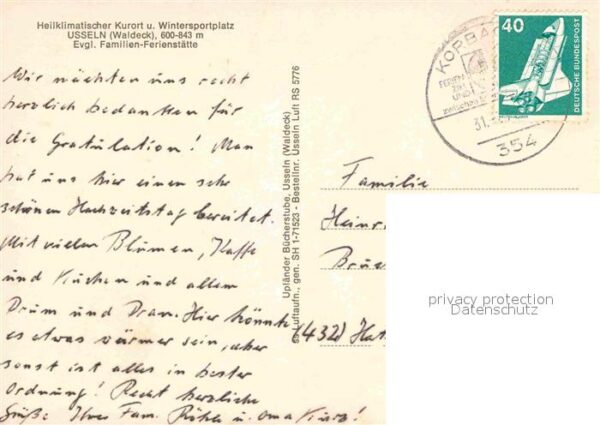 Heilklimatischer Kurort u. Wintersportplatz
USSELN (Waldeck), 600-843 m
Evgl. Familien-Ferienstätte
Wir möchten uns recht
herzlich bedanken für
die Gratulation! Man
hat uns hier einen sehr
schönen Hochzeitstag bereitet.
Mit vielen Blumen, Kaffe
und Kuchen und allem
Drum und Dran. Hier könnte
es etwas wärmer sein, aber
sonst ist alles in bester
Ordnung! Recht herzliche
Grüße Ihre Fam. u. Oma
Upländer Bücherstube, Usseln (Waldeck)
Luftaufn., gen. SH 1-71523 - Bestellnr. Usseln Luft RS 5776
KORBA
31.
354
40
DEUTSCHE BUNDESPOST
Familie
Heinr
(432) Hat
privacy protection
Datenschutz